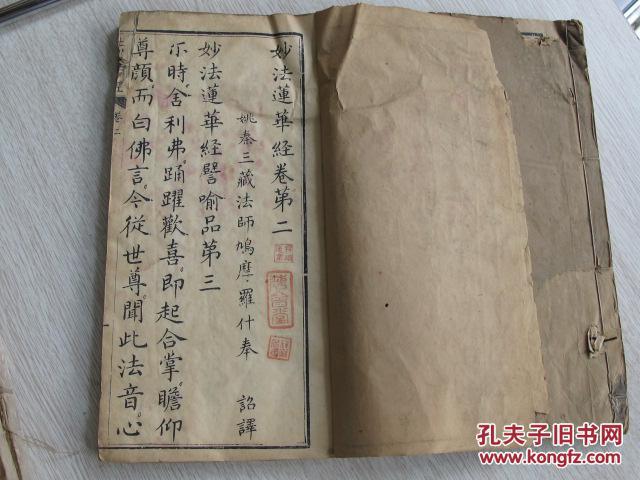 妙法蓮華經卷第二
姚秦三藏法師鳩摩羅什奉 詔譯
妙法蓮華經譬喻品第三
尔時舍利弗踊躍歡喜即起合掌瞻仰
尊顏而白佛言今從世尊聞此法音心
卷二
孔夫子旧书网
www.kongfz.com